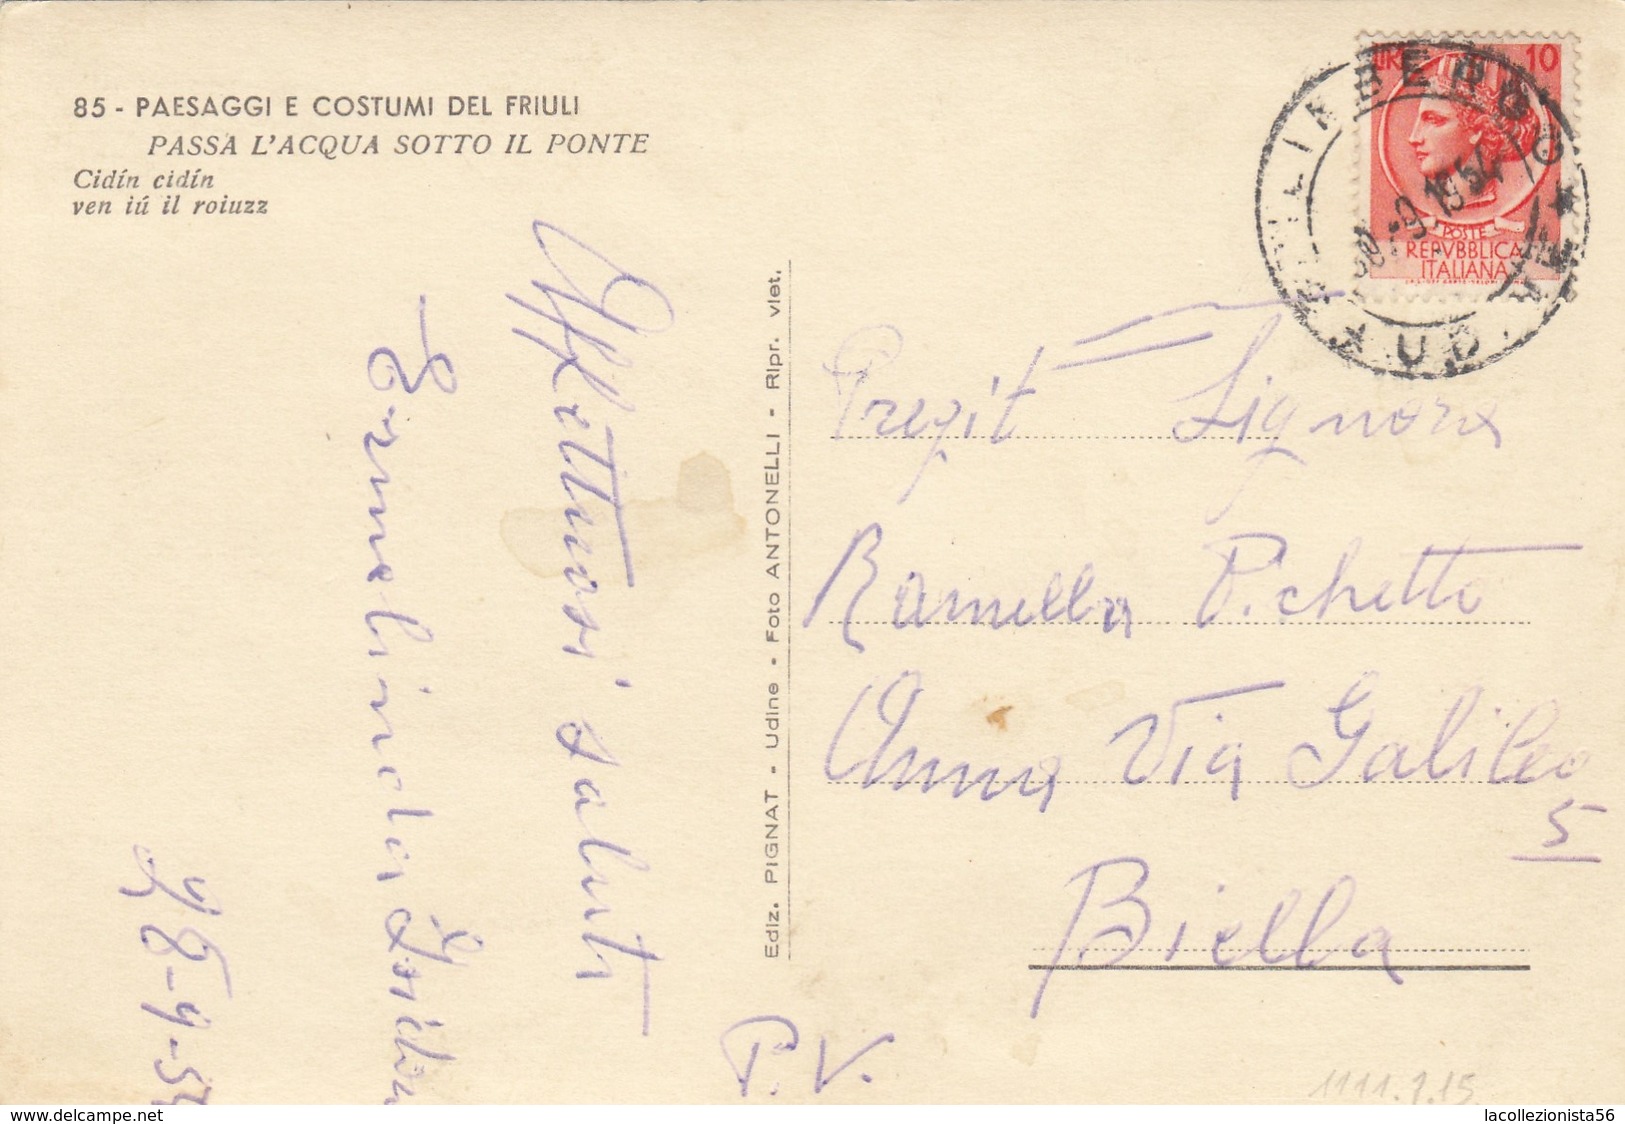 85 - PAESAGGI E COSTUMI DEL FRIULI
PASSA L'ACQUA SOTTO IL PONTE
Cidín cidín
ven iú il roiuzz
Affettuosi saluti
Ermelinda Isidoro
28-9-54
Ediz. PIGNAT - Udine - Foto ANTONELLI - Ripr. viet.
LIRE 10
POSTE
REPVBBLICA
ITALIANA
28.-9.1954
Pregit Signora
Ramella Pichetto
Anna Via Galileo
5
Biella
P.V.
1111.7.15
lacollezionista56
www.delcampe.net